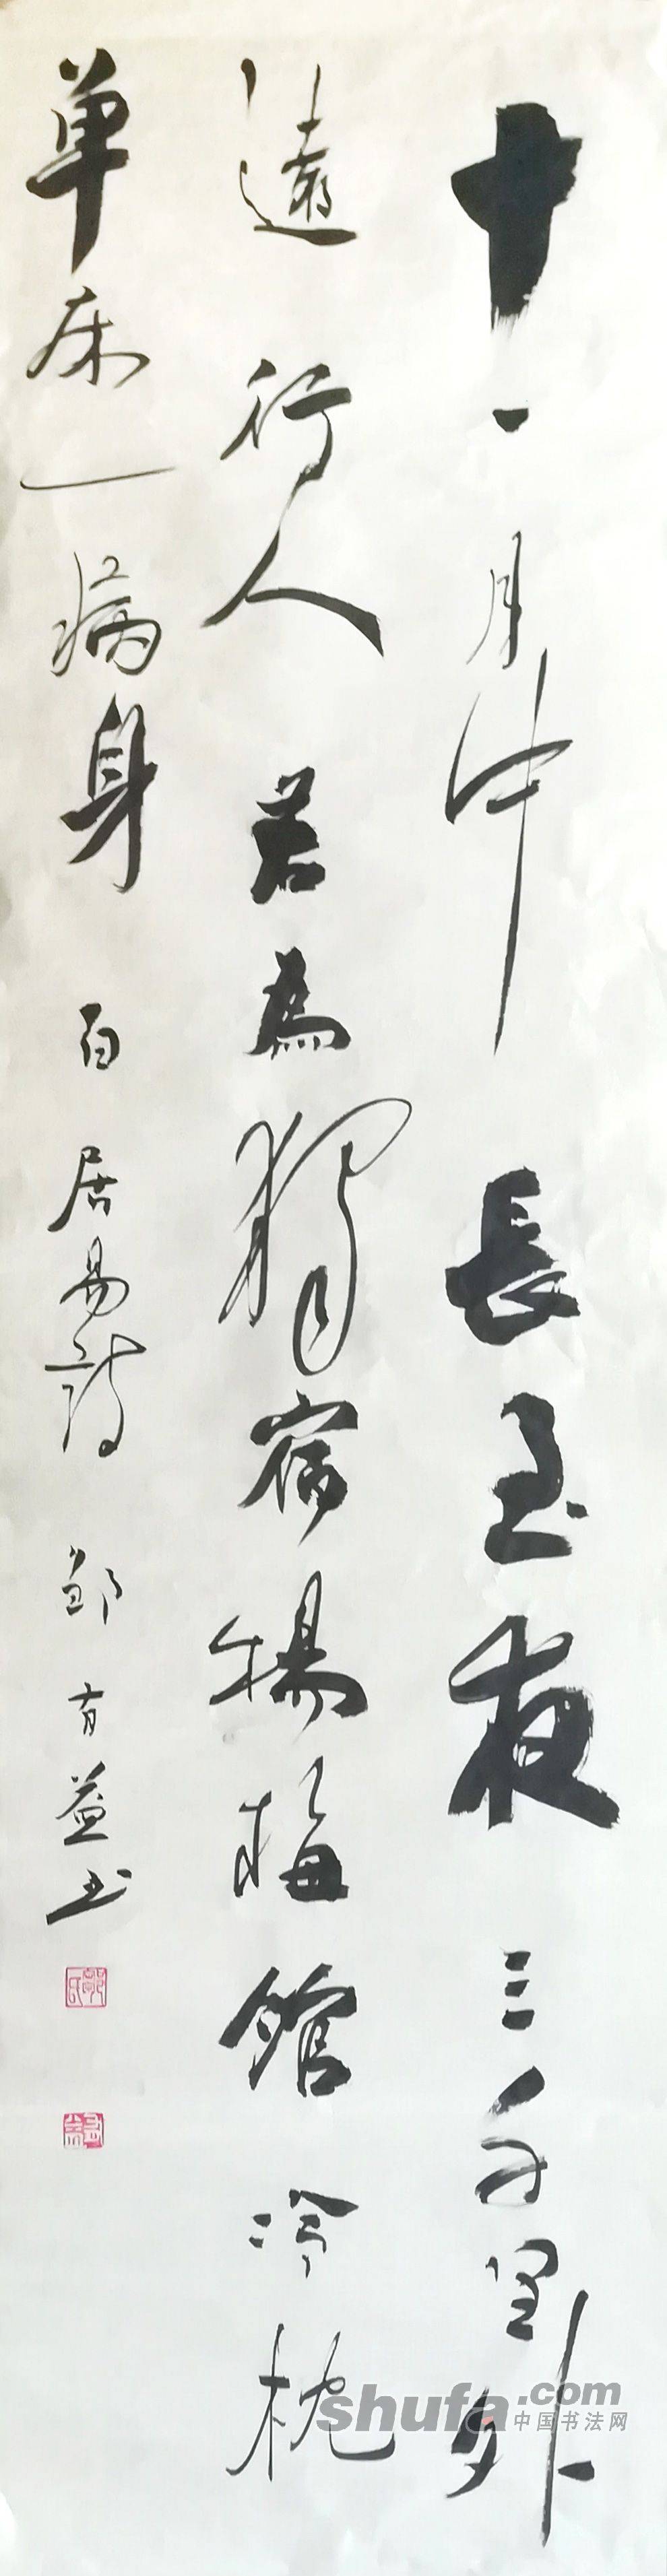 十一月中長至夜三千里外
遠行人若為獨宿楊梅館冷枕
单床一病身白居易詩鄒有益书
shufa.com
中国书法网